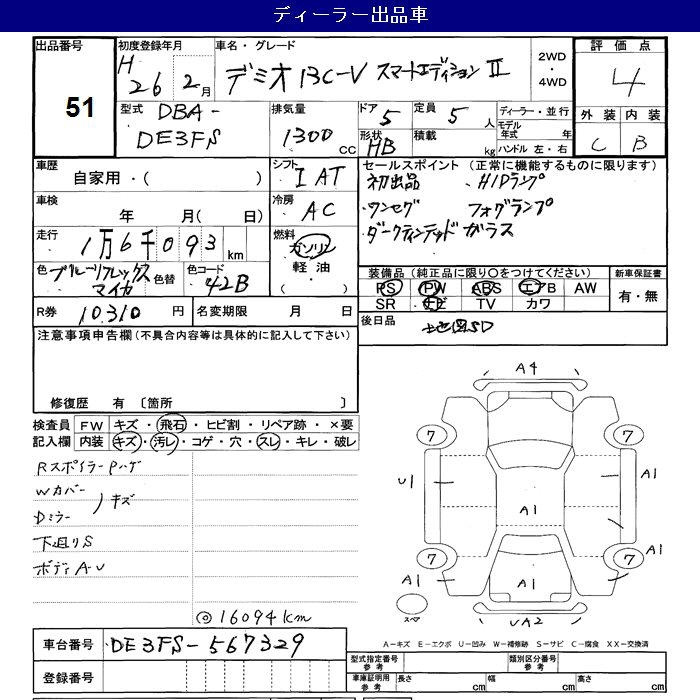 ディーラー出品車
出品番号
51
初度登録年月
H
26年 2月
車名・グレード
デミオ 13C-V スマートエディションⅡ
2WD
・
4WD
評価点
4
外装 内装
C B
型式
DBA-
DE3FS
排気量
1300 CC
ドア 5
形状 HB
定員 5 人
積載 kg
ディーラー・並行
モデル年式 年
ハンドル 左・右
車歴
自家用・( )
シフト
I AT
車検
年 月( 日)
冷房
AC
走行
1万6千093 km
燃料
ガソリン
軽油
・
色
ブルーリフレックスマイカ
色替
色コード
42B
R券 10310 円
名変期限 月 日
セールスポイント (正常に機能するものに限ります)
初出品 ・HIDランプ
・ワンセグ フォグランプ
・ダークティンテッドガラス
装備品 (純正品に限り○をつけてください)
新車保証書
PS PW ABS エアB AW
SR ナビ TV カワ
有・無
後日品
地図SD
注意事項申告欄(不具合内容等は具体的に記入して下さい)
修復歴 有 〔箇所 〕
検査員記入欄
FW キズ・飛石・ヒビ割・リペア跡・×要
内装 キズ・汚レ・コゲ・穴・スレ・キレ・破レ
RスポイラーPハゲ
Wカバー
Dミラー
)キズ
下廻りS
ボディA・U
◎16094km
A4
7 7
U1 A1 A1
7 7
A1 A1 A1
スペア
UA2
A-キズ E-エクボ U-凹み W-補修跡 S-サビ C-腐食 XX-交換済
車台番号 DE3FS-567329
登録番号
型式指定番号
参考
類別区分番号
参考
車庫証明用
参考
長さ cm
幅 cm
高さ cm